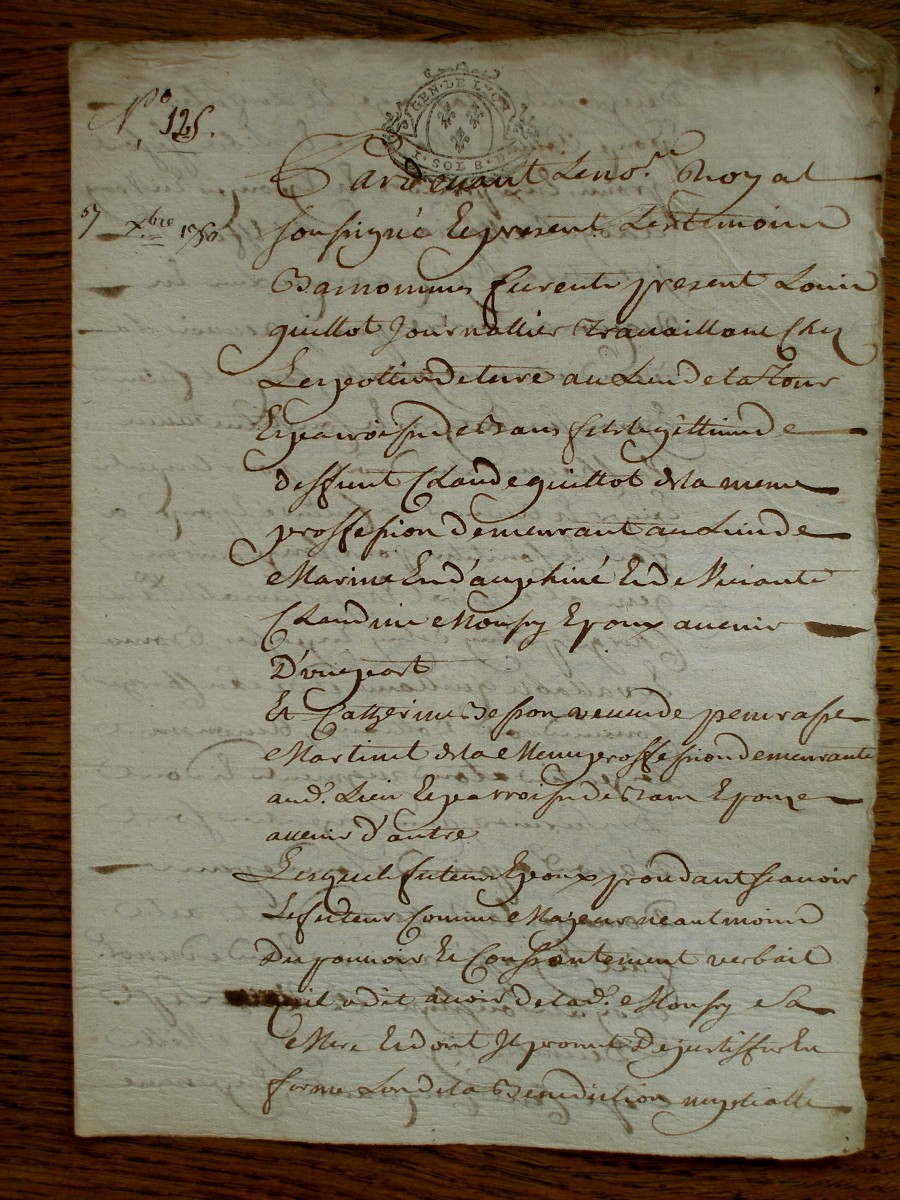 N° 125.
GEN. DE LYON
SOL 8 D
Pardevant Le no.re Royal
7 Xbre
soussigné Et present Les temoins
Bas nommes furent present Louis
guillot Journallier travaillant Chez
Les pottiers de terre au Lieu de la Tour
Et parroisse de fils Legittime de
deffunt Claude guillot de la meme
proffession demeurant au Lieu de
Marine En d'auphiné Et de Vivante
Claudine Mousy Epoux avenir
D'une part
Et Catherine Besson veuve de
Martinet de la Meme proffession demeurante
aud. Lieu Et parroisse de Epouze
avenir d'autre
Lesquels futeurs Epoux proce­dant scavoir
Le futeur Comme Majeur neantmoins
Du pouvoir Et Consentement verbait
quil a dit avoir de lad. Mousy Sa
Mere Et dont Il promet De justiffier En
forme Lors de la Benediction nuptialle